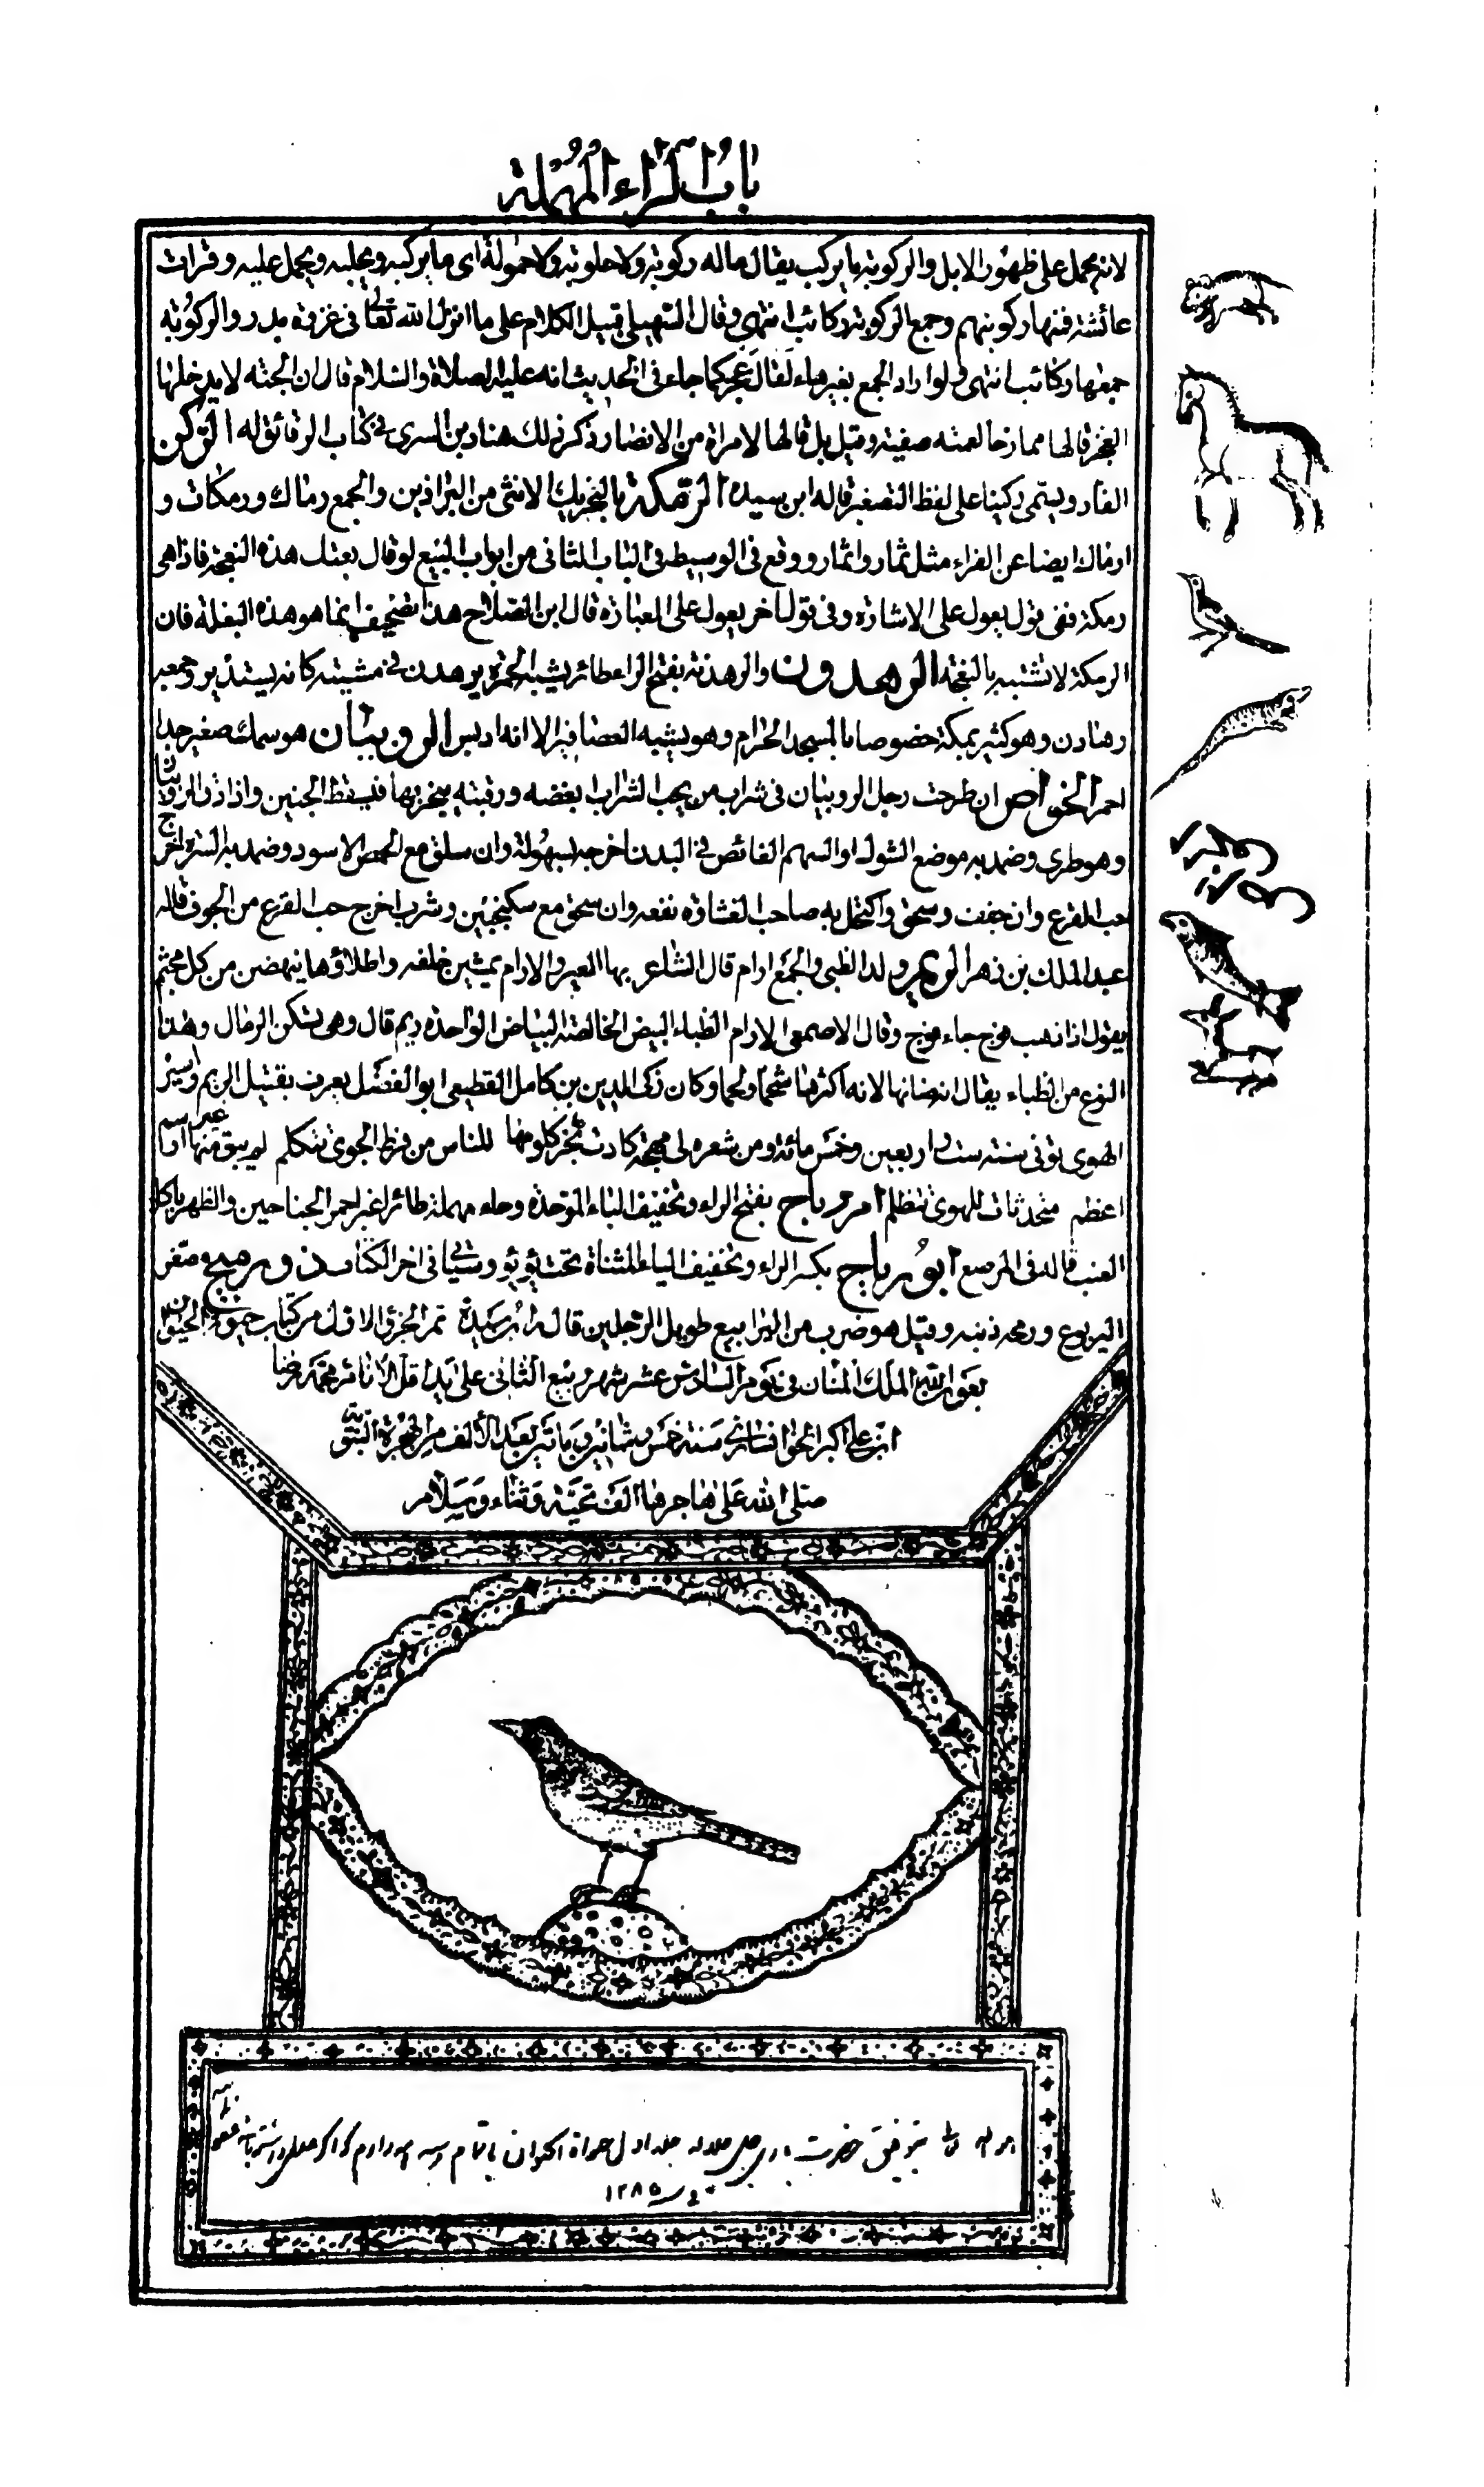 باب الراء المهملة
لانه يحمل على ظهور الابل والركوبة ما يركب يقال ماله ركوبة ولا حلوبة ولا حمولة اى ما يركبه ويحلبه ويحمل عليه وقرات
عائشة فمنها ركوبتهم وجمع الركوبة ركائب انتهى وقال السهيلى قبيل الكلام على ما انزل الله تعالى فى غزوة بدر والركوبة
جمعها ركائب انتهى ولو اراد الجمع بغير هاء لقال عجز كما جاء فى الحديث انه عليه الصلاة والسلام قال ان الجنة لا يدخلها
العجز قالها ممازحا لعمته صفية وقيل بل قالها لامراة من الانصار ذكر ذلك هناد بن السرى فى كتاب الرقائق له الركن
الفار ويسمى ركينا على لفظ التصغير قاله ابن سيده الرمكة بالتحريك الانثى من البراذين والجمع رماك ورمكات و
ارماك ايضا عن الفراء مثل ثمار واثمار ووقع فى الوسيط فى الباب الثانى من ابواب البيع لو قال بعتك هذه النعجة فاذا هى
رمكة ففى قول يعول على الاشارة وفى قول اخر يعول على العبارة قال ابن الصلاح هذا تصحيف انما هو هذه البغلة فان
الرمكة لا تشتبه بالنعجة الرهدون والرهدنة بفتح الراء طائر يشبه الحمرة يرهدن فى مشيته كانه يستدير وجمعه
رهادن وهو كثير بمكة خصوصا بالمسجد الحرام وهو يشبه العصافير الا انه ادبس الروبيان هو سمك صغير جدا
احمر الخواص ان طرحت رجل الروبيان فى شراب من يحب الشراب ابغضه ورقبته يبخر بها فيسقط الجنين واذا دق الروبيان
وهو طرى وضمد به موضع الشوك او السهم الغائص فى البدن اخرجه بسهولة وان سلق مع الحمص الاسود وضمد به السرة اخرج
حب القرع وان جفف وسحق واكتحل به صاحب الغشاوة نفعه وان سحق مع سكنجبين وشرب اخرج حب القرع من الجوف قاله
عبد الملك بن زهر الريم ولد الظبى والجمع ارام قال الشاعر بها العير والارام يمشين خلفه واطلاؤها ينهضن من كل مجثم
يقول اذا ذهب فوج جاء فوج وقال الاصمعى الارام الظباء البيض الخالصة البياض الواحدة ريم قال وهى تسكن الرمال وهذا
النوع من الظباء يقال انه ضانها لانه اكثرها شحما ولحما وكان زكى الدين بن كامل القطيعى ابو الفضل يعرف بقتيل الريم واسير
الهوى توفى سنة ست واربعين وخمس مائة ومن شعره لى مهجة كادت بحر كلومها للناس من فرط الجوى تتكلم لم يبق منها غير ارسم
اعظم متحدثات للهوى تتظلم ام رباح بفتح الراء وتخفيف الباء الموحدة وحاء مهملة طائر اغبر احمر الجناحين والظهر ياكل
العنب قاله فى المرصع ابو رياح بكسر الراء وتخفيف الياء المثناة تحت يؤيؤ وسياتى فى اخر الكتاب ذو رميح صغير
اليربوع ورمحه ذنبه وقيل هو ضرب من اليرابيع طويل الرجلين قال ابن سيدة تم الجزء الاول من كتاب حيوة الحيوان
بعون الله الملك المنان فى يوم السادس عشر شهر ربيع الثانى على يد اقل الانام محمد رضا
ابن على اكبر الخوانسارى سنة خمس وثمانين وماتين بعد الالف من الهجرة النبوية
صلى الله على هاجرها الف تحية وثناء وسلام
بتوفيق حضرت بارى جل جلاله جلد اول حيوة الحيوان باتمام رسيد
١٢٨٥